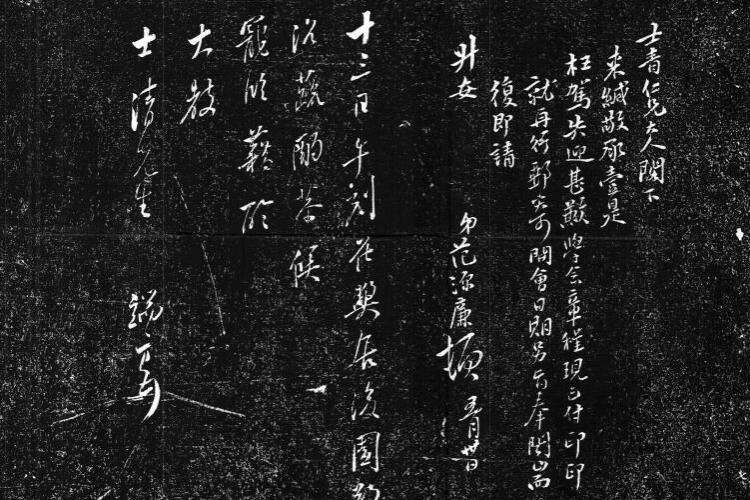 士青仁兄大人閣下
来緘敬承壹是
枉駕失迎甚歉學会章程現已付印印
就再行郵寄開會日期另有奉聞耑
復即請
升安
弟范源廉頓
十三日午刻在居後園
治蔬酌恭候
寵臨藉聆
大教
士清先生